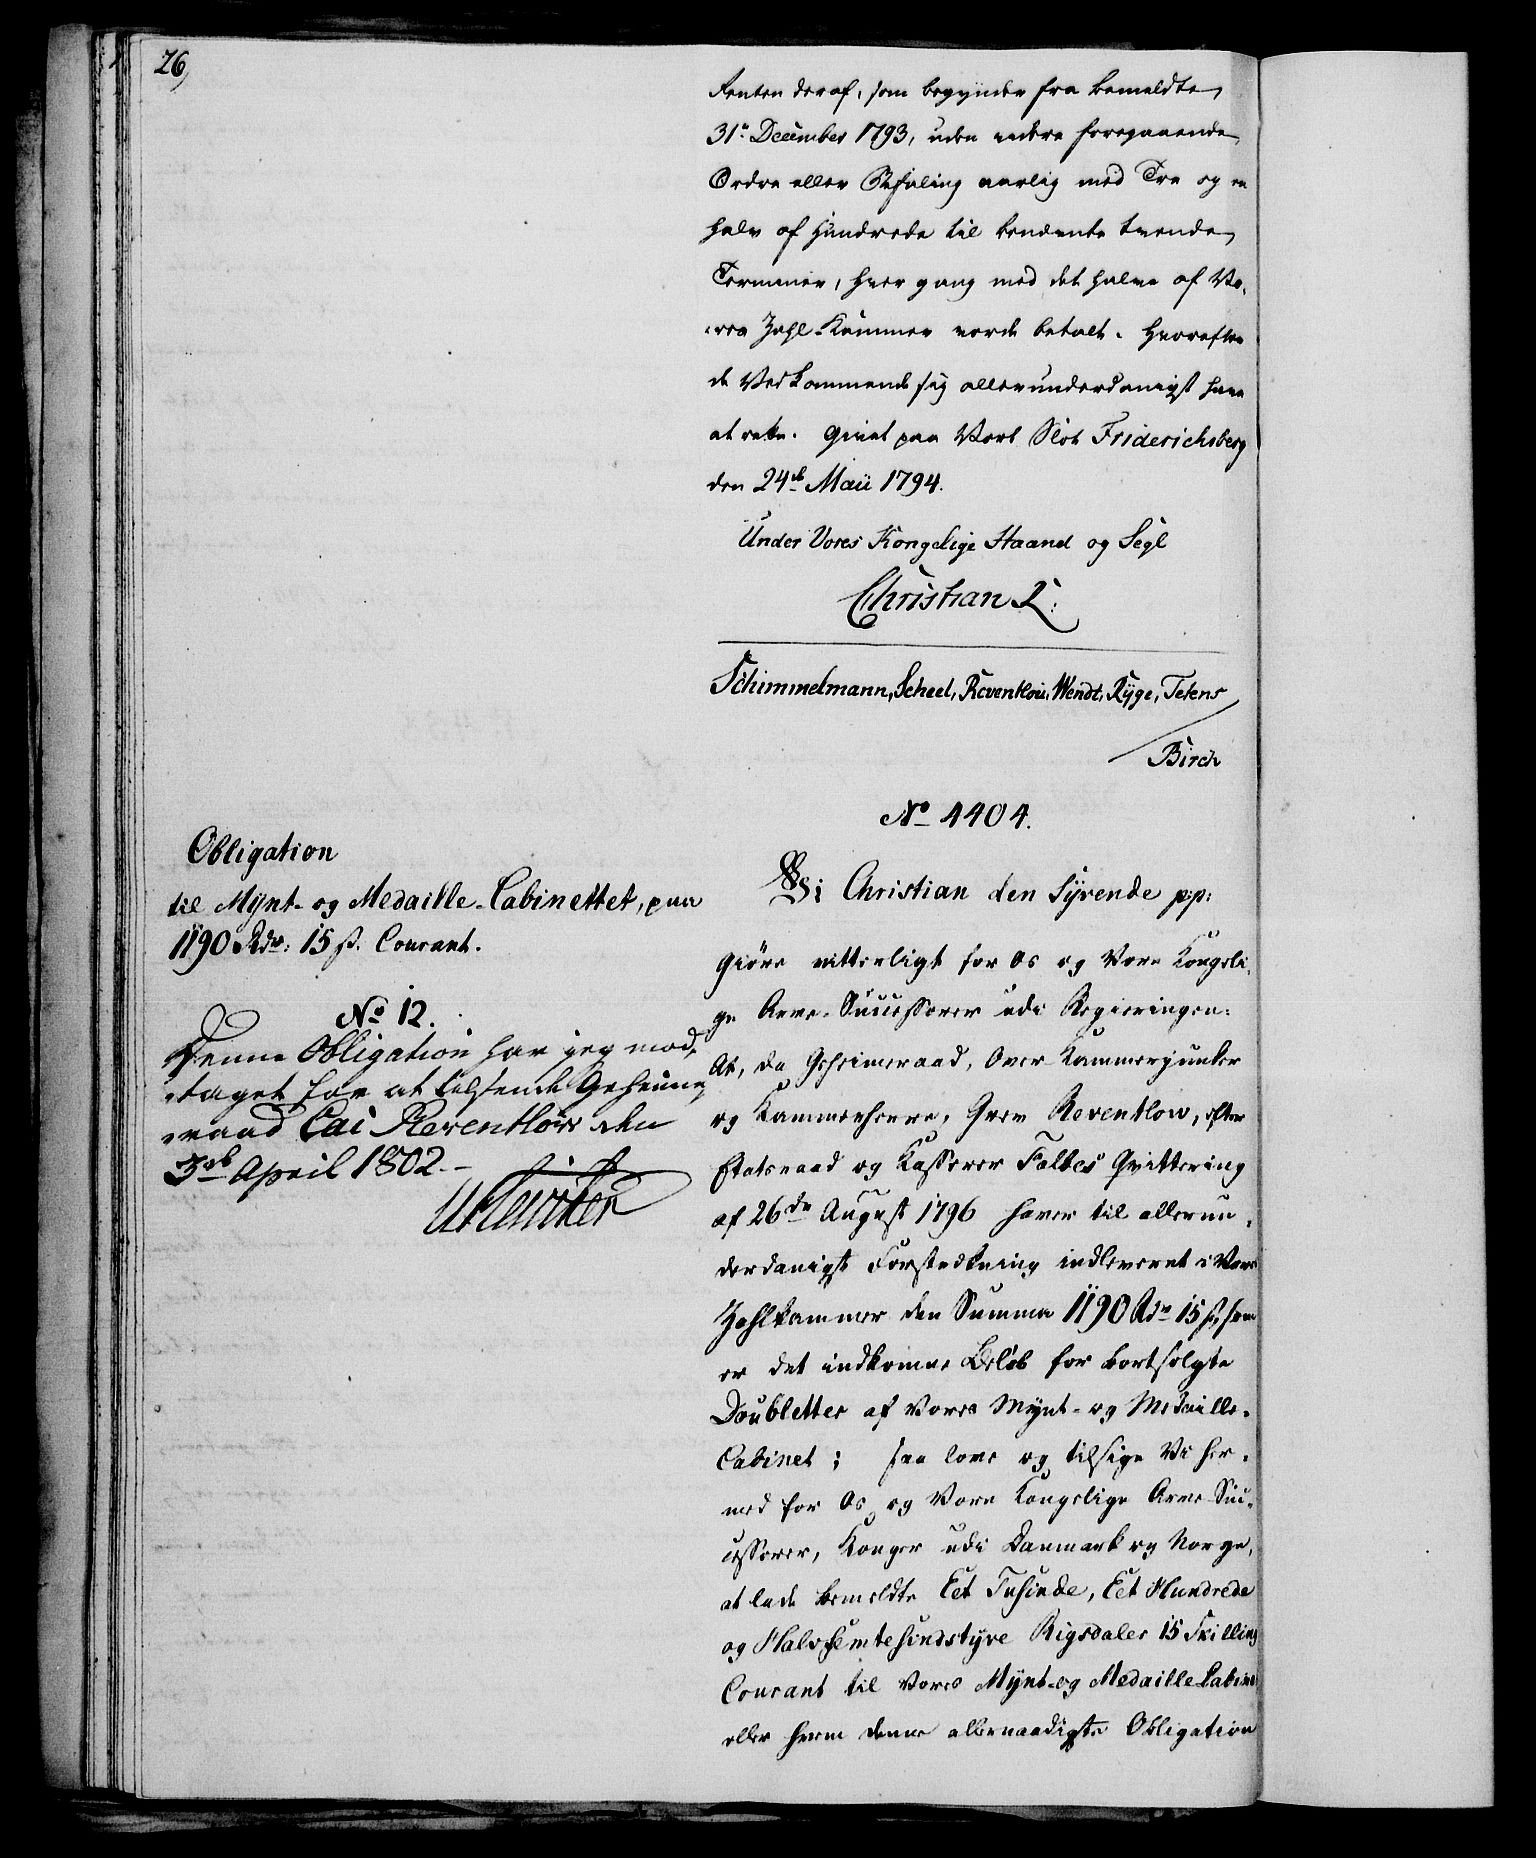 26,
Renten deraf, som begynder fra bemeldte
31te December 1793, uden videre foregaaende
Ordre eller Befaling aarlig med Tre og en
halv af Hundrede til bendente tvende
Terminer, hver gang med det halve af Vo-
res Zahl-Kammer vorde betalt. Hvorefter
de Vedkommende sig allerunderdanigst have
at rette. Givet paa Vort Slot Friderichsberg
den 24de Maii 1794.
Under Vores Kongelige Haand og Segl
Christian R:
Schimmelmann, Scheel, Reventlou, Wendt, Ryge, Tetens
/
Birch
No 4404.
Obligation
til Mynt- og Medaille-Cabinettet, paa
1190 Rdr: 15 ß. Courant.
No 12.
Denne Obligation har jeg mod-
taget for at tilstende Geheime-
raad Cai Reventlow den
3de April 1802.
Vi Christian den Syvende pp:
Giöre vitterligt for Os og Vore Kongeli-
ge Arve-Successorer udi Regieringen:
At, da Geheimeraad, Over-Kammerjunker
og Kammerherre, Grev Reventlow, efter
Etatsraad og Kasserer Falbes Qvittering
af 26de August 1796 haver til allerun-
derdanigst Forstrækning indleveret i Vores
Zahlkammer den Summa 1190 Rdr 15 ß, som
er det indkomne Beløb for bortsolgte
Doubletter af Vores Mynt- og Medaille-
Cabinet; saa love og tilsige Vi her-
med for Os og Vore Kongelige Arve Suc-
cessorer, Konger udi Danmark og Norge,
at lade bemeldte Eet Tusinde, Eet Hundrede
og Halvfemtesindstyve Rigsdaler 15 Skilling
Courant til Vores Mynt- og Medaille-Cabinet
eller hvem denne allernaadigste Obligation